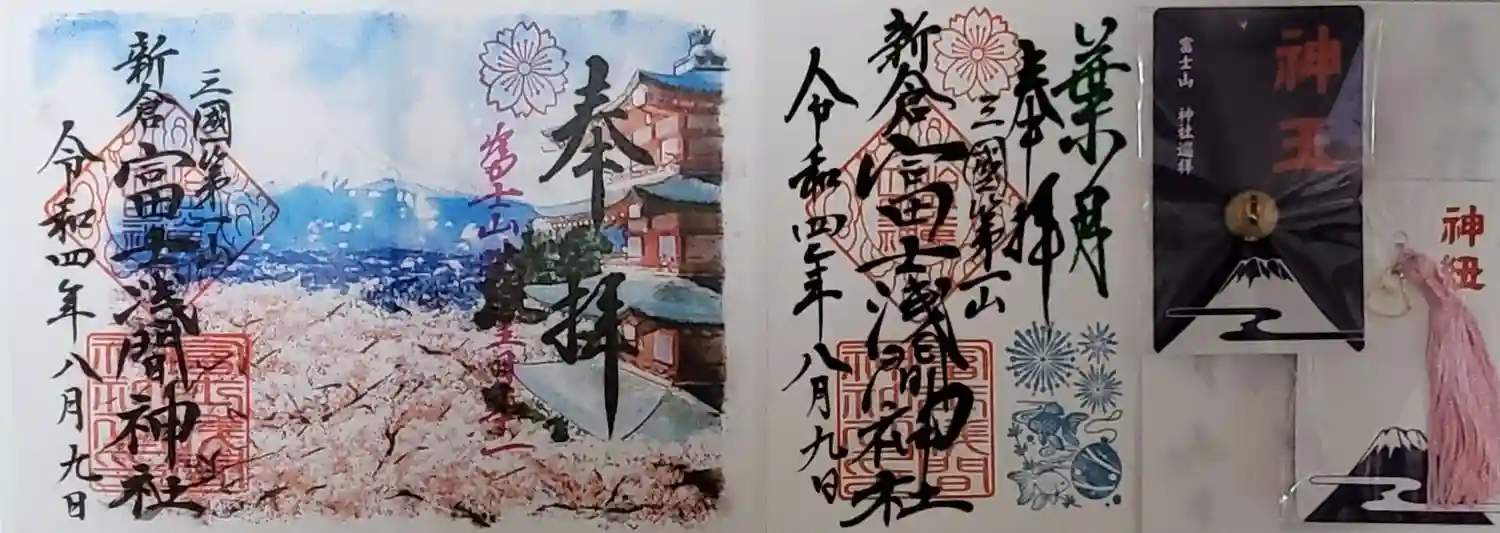 奉拝
三國第一山
新倉富士浅間神社
令和四年八月九日
葉月
奉拝
三國第一山
新倉富士浅間神社
令和四年八月九日
神玉
富士山 神社巡拝
神紐